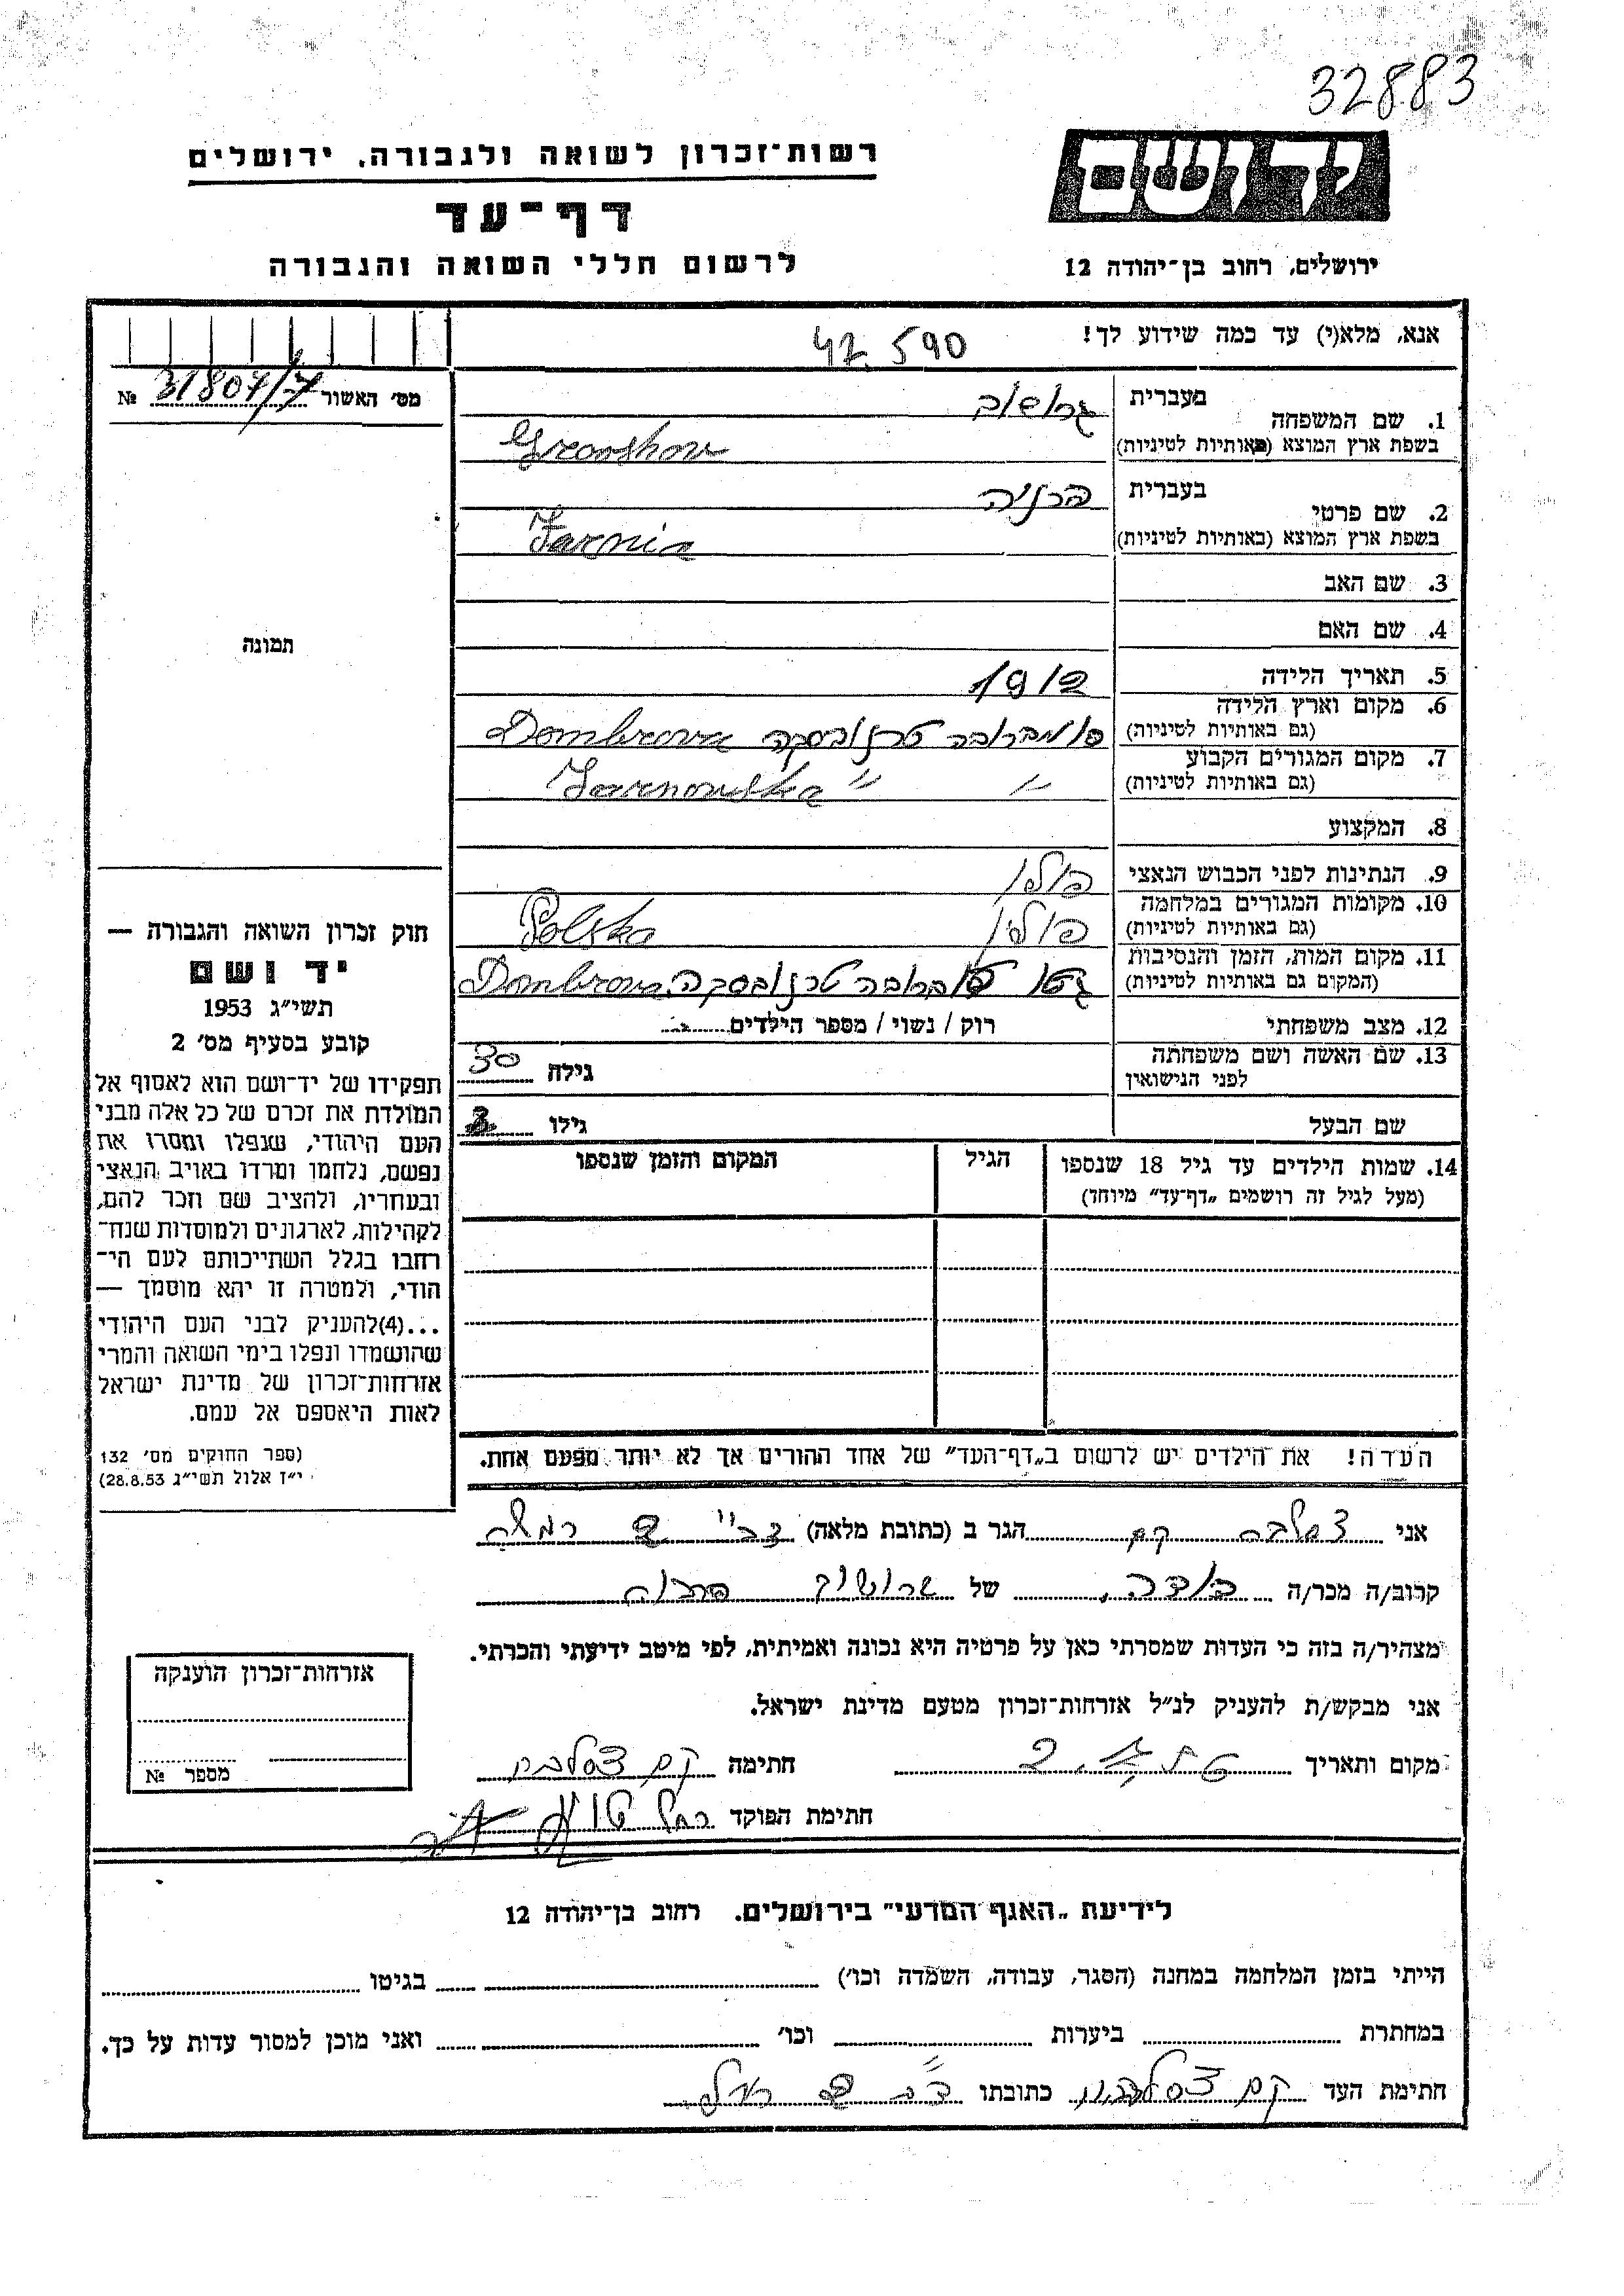 32883
יד ושם
רשות־זכרון לשואה ולגבורה, ירושלים
דף־עד
לרשום חללי השואה והגבורה
ירושלים, רחוב בן־יהודה 12
אנא, מלא(י) עד כמה שידוע לך!
42 590
מס׳ האשור 31804/7 №
1. שם המשפחה
בעברית
גרושוב
בשפת ארץ המוצא (באותיות לטיניות)
2. שם פרטי
בעברית
פרניה
בשפת ארץ המוצא (באותיות לטיניות)
Farnia
3. שם האב
4. שם האם
5. תאריך הלידה 1912
6. מקום וארץ הלידה
(גם באותיות לטיניות)
טרנובסקה Dombrowa
7. מקום המגורים הקבוע
(גם באותיות לטיניות)
Tarnowska
8. המקצוע
9. הנתינות לפני הכבוש הנאצי פולין
10. מקומות המגורים במלחמה
(גם באותיות לטיניות)
פולין Polska
11. מקום המות, הזמן והנסיבות
(המקום גם באותיות לטיניות)
גטו טרנובסקה Dombrowa
12. מצב משפחתי רוק / נשוי / מספר הילדים
13. שם האשה ושם משפחתה
לפני הנישואין
גילה 30
שם הבעל גילו
14. שמות הילדים עד גיל 18 שנספו
(מעל לגיל זה רושמים „דף־עד״ מיוחד)
הגיל
המקום והזמן שנספו
תמונה
חוק זכרון השואה והגבורה —
יד ושם
תשי״ג 1953
קובע בסעיף מס׳ 2
תפקידו של יד־ושם הוא לאסוף אל
המולדת את זכרם של כל אלה מבני
העם היהודי, שנפלו ומסרו את
נפשם, נלחמו ומרדו באויב הנאצי
ובעחריו, ולהציב שם וזכר להם,
לקהילות, לארגונים ולמוסדות שנח־
רחבו בגלל השתייכותם לעם הי־
הודי, ולמטרה זו יהא מוסמך —
...(4)להעניק לבני העם היהודי
שהושמדו ונפלו בימי השואה והמרי
אזרחות־זכרון של מדינת ישראל
לאות היאספם אל עמם.
(ספר החוקים מס׳ 132
י״ז אלול תשי״ג 28.8.53)
העדה! את הילדים יש לרשום ב„דף־העד״ של אחד ההורים אך לא יותר מפעם אחת.
אני הגר ב (כתובת מלאה)
קרוב/ה מכר/ה של
מצהיר/ה בזה כי העדות שמסרתי כאן על פרטיה היא נכונה ואמיתית, לפי מיטב ידיעתי והכרתי.
אני מבקש/ת להעניק לנ״ל אזרחות־זכרון מטעם מדינת ישראל.
מקום ותאריך חתימה
חתימת הפוקד
אזרחות־זכרון הוענקה
מספר №
לידיעת „האגף המדעי״ בירושלים. רחוב בן־יהודה 12
הייתי בזמן המלחמה במחנה (הסגר, עבודה, השמדה וכו׳) בגיטו
במחתרת ביערות וכו׳ ואני מוכן למסור עדות על כך.
חתימת העד כתובתו